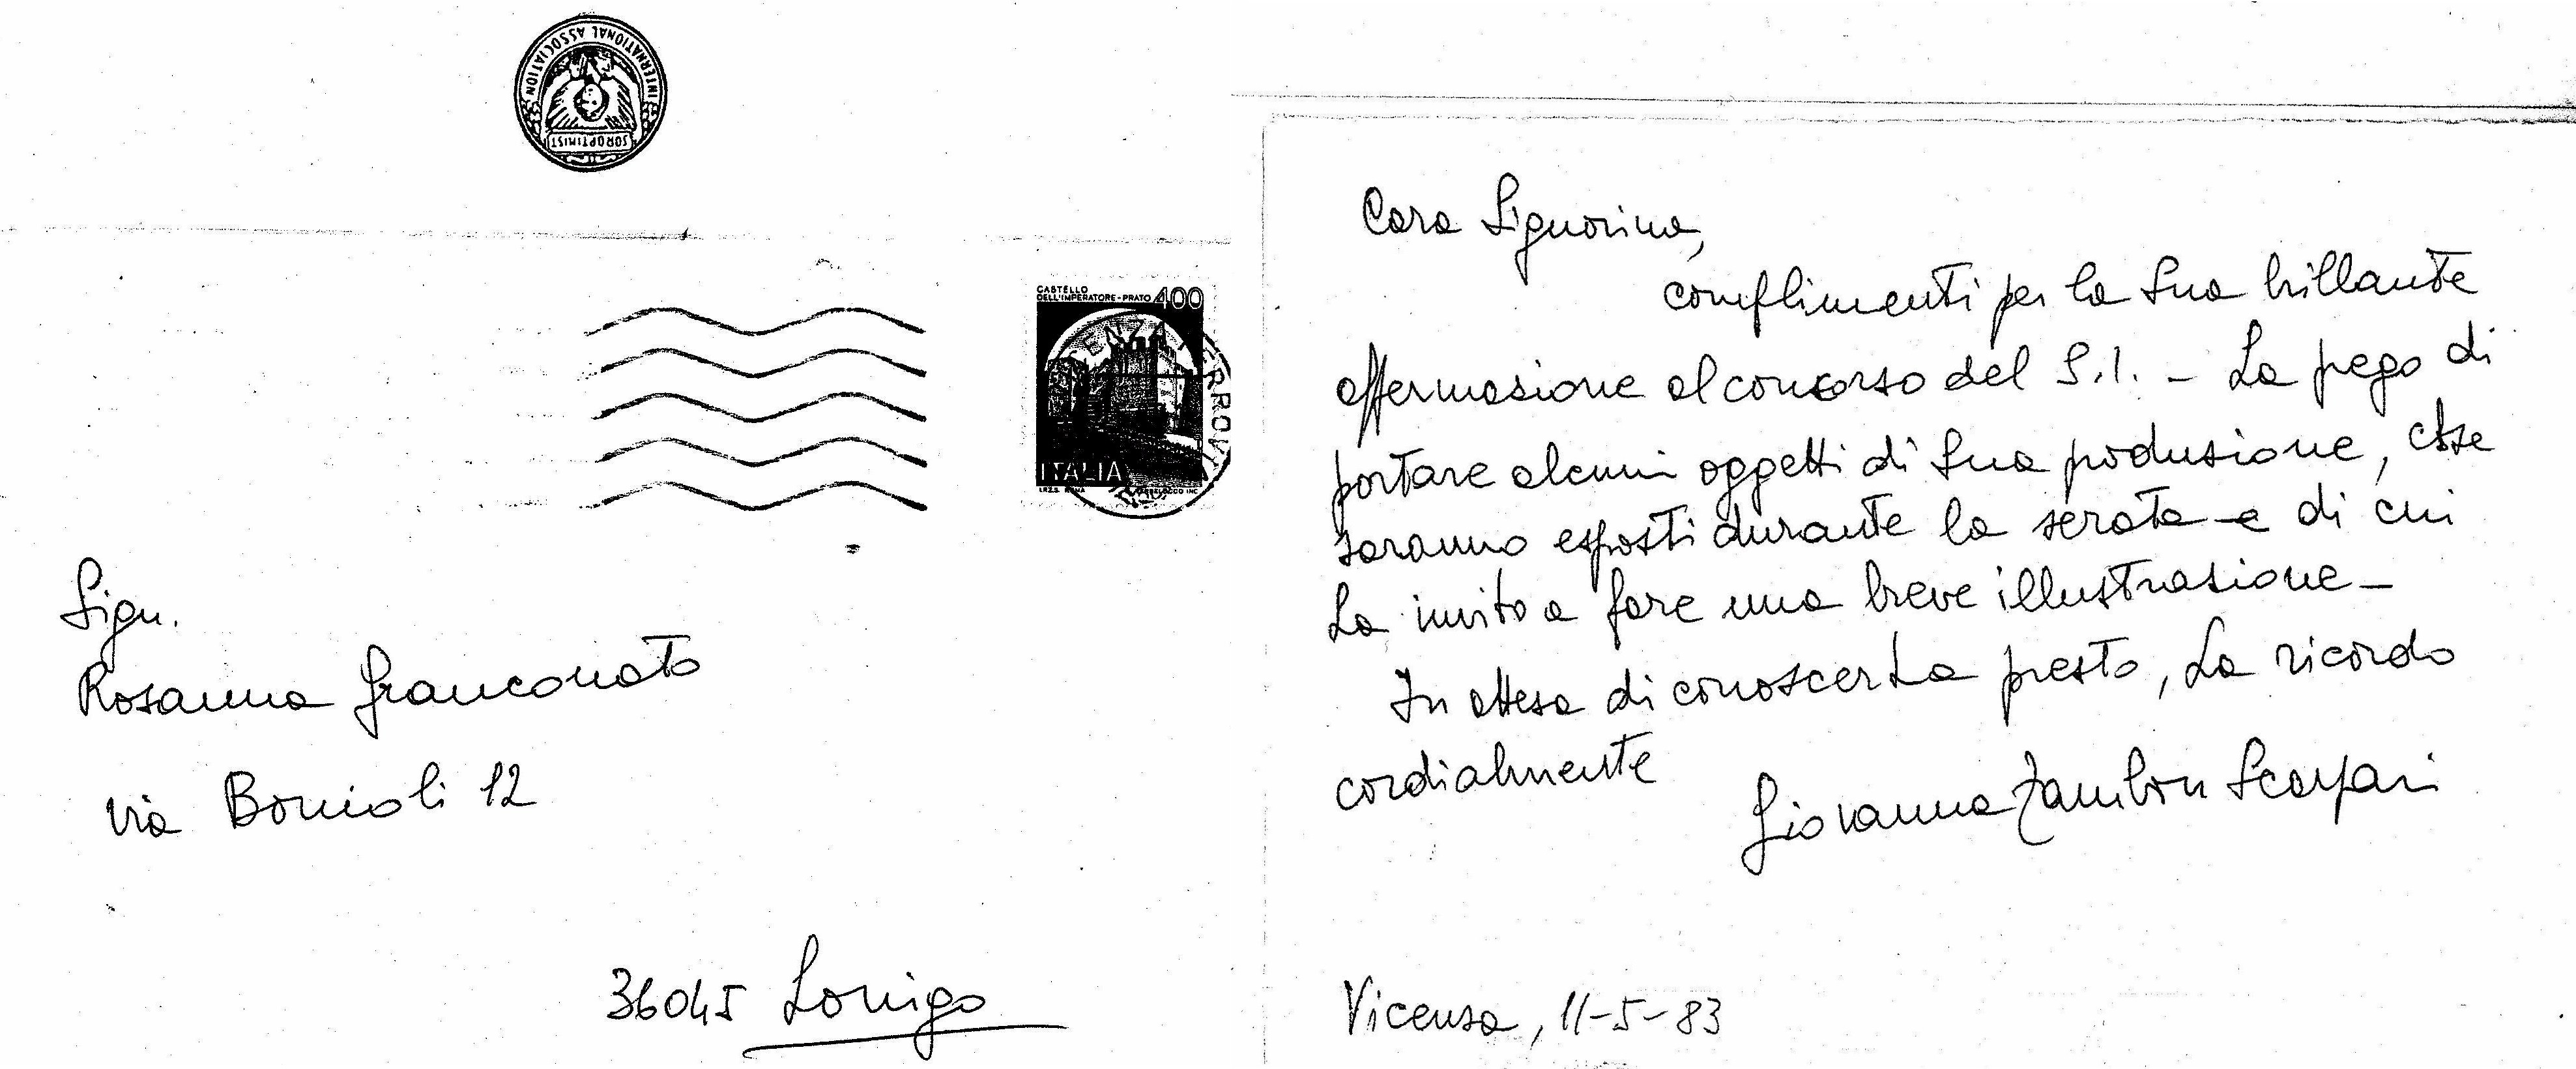 INTERNATIONAL ASSOCIATION
SOROPTIMIST
CASTELLO
DELL'IMPERATORE - PRATO 400
ITALIA
Sign.
Rosanna Granconato
via Bonioli 12
36045 Lonigo
Cara Signorina,
complimenti per la Sua brillante
affermazione al concorso del S.I. - La prego di
portare alcuni oggetti di Sua produzione, che
saranno esposti durante la serata e di cui
La invito a fare una breve illustrazione -
In attesa di conoscerLa presto, La ricordo
cordialmente
Giovanna Zambon Scarpari
Vicenza, 11-5-83